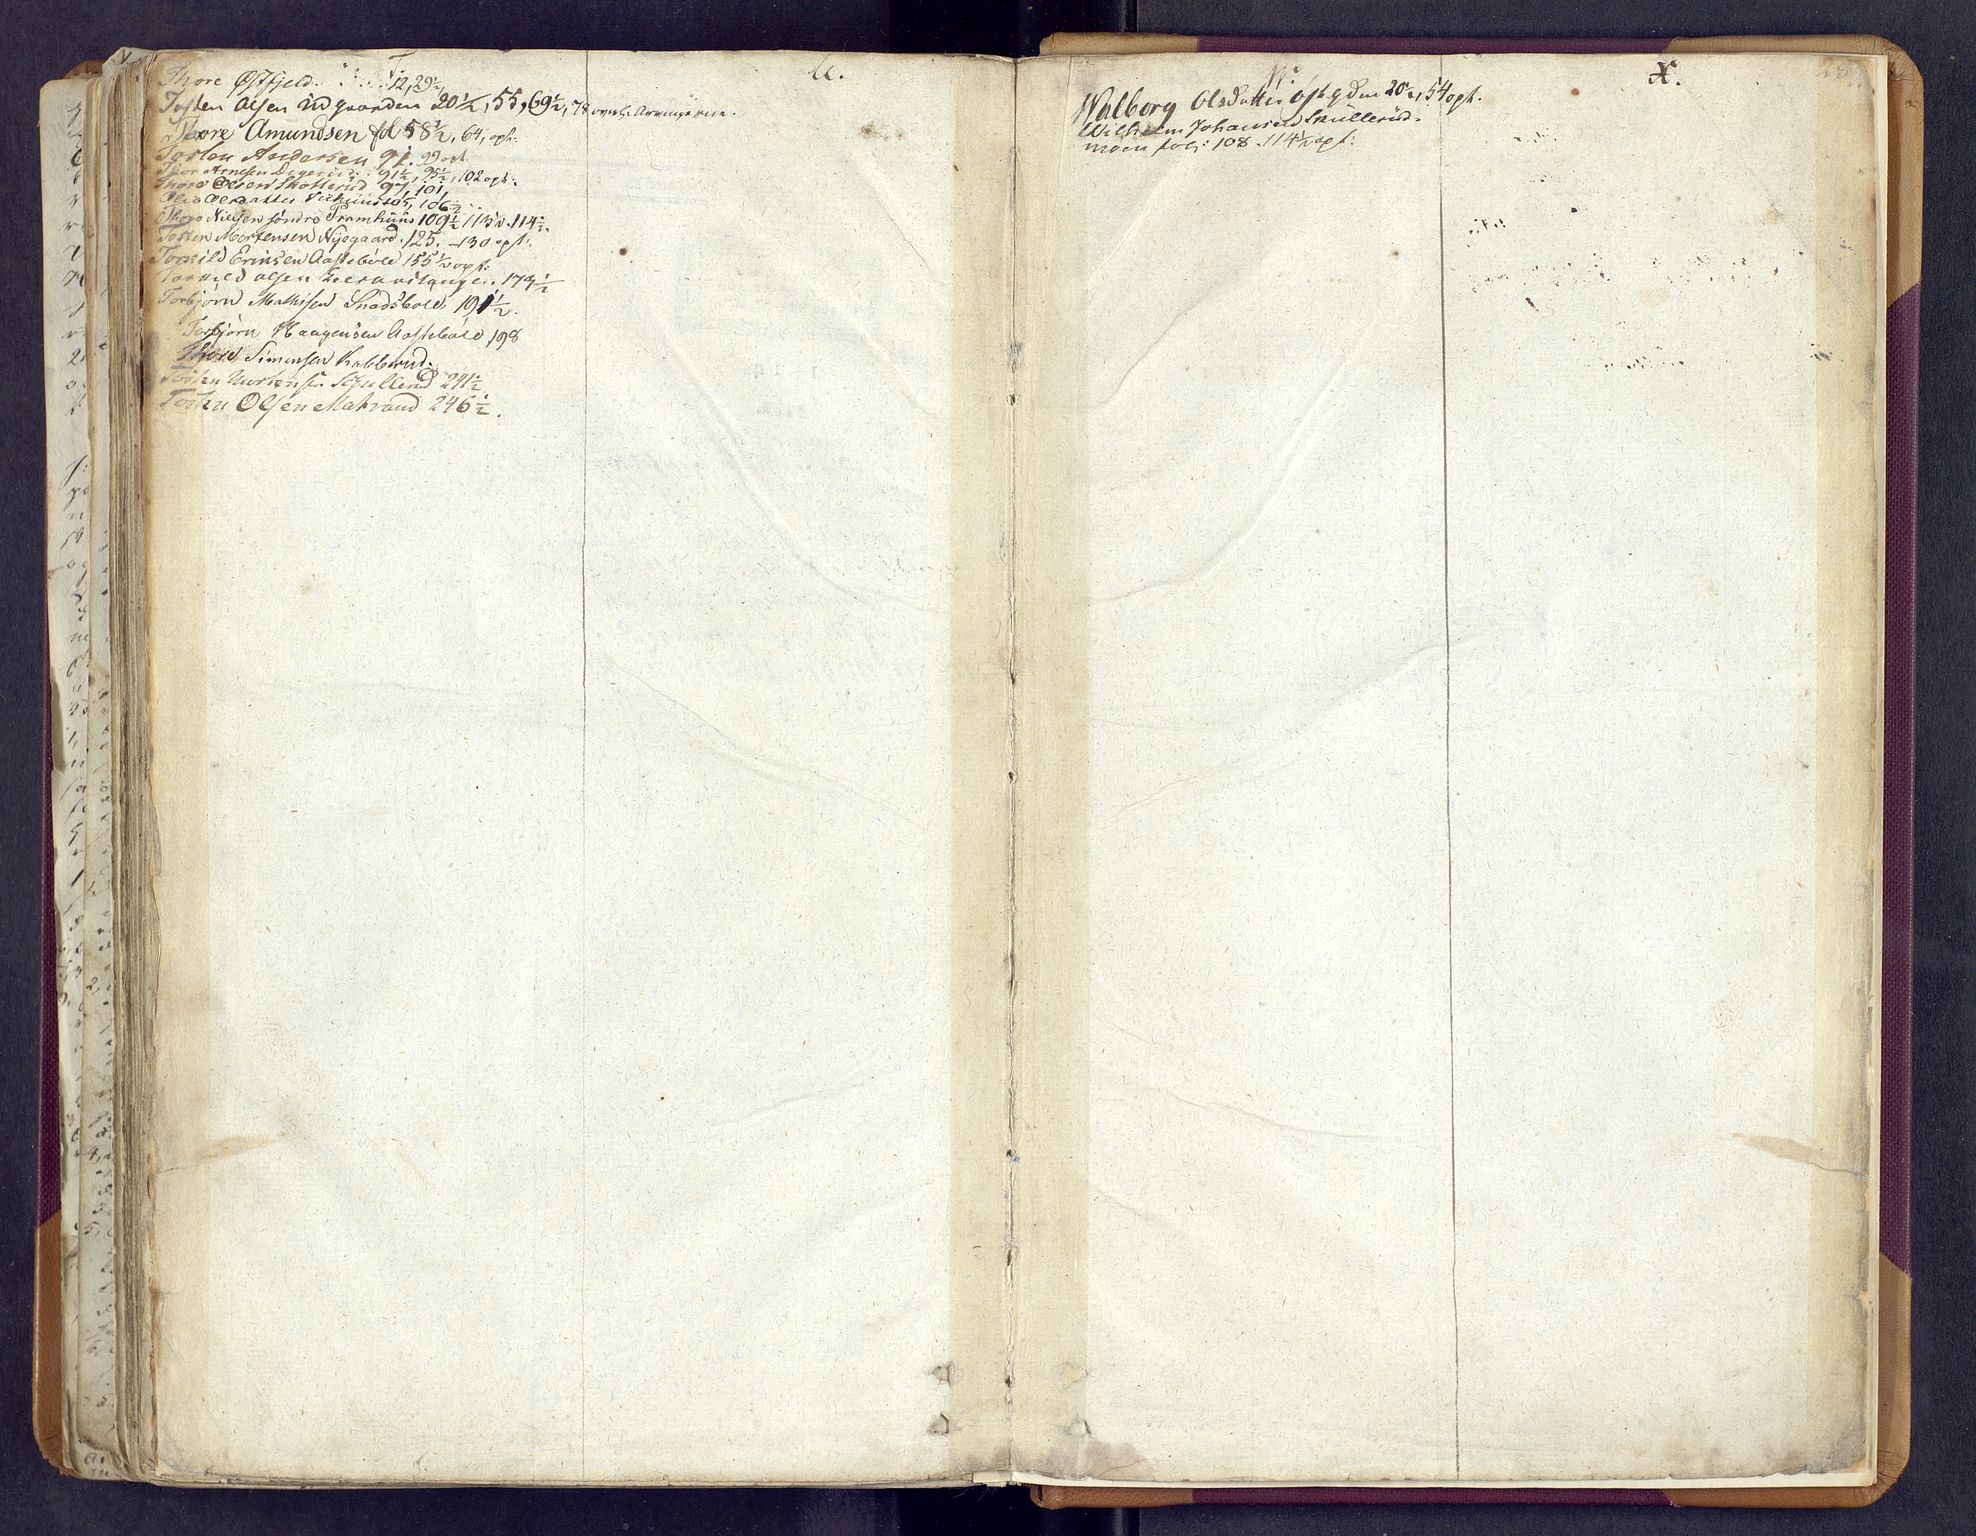 T.
Thore Østfjeld 12, 29½,
Tosten Olsen Nidgaarden 20½, 55, 69½, 78
Thore Amundsen fol 58½, 64, opt:
Tosten Andersen 91. 99 opt
Thor Arnesen 91½, 95½, 102 opt:
Thore Olsen Skotterud 97, 101,
Olsdatter 105, 106½
Thore Nielsen søndre Framhuus 109½ 113 v. 114½.
Tosten Mortensen Nygaard. 125. 130 opt:
Torkild Erichsen Aastebøle 155½ opt:
Torkild Olsen 174½
Torbjørn Mathisen Snadsbøle, 191½.
Torbjørn Haagensen Aastebøle 198
Thore Simensen Kabberud.
Tosten Mortensen 241½
Tosten Olsen Matrand 246½.
U.
W.
Walborg Olsdatter 20½, 54 opt.
Wilhelm Johansen Skullerud-
moen fol: 108. 114½ opt:
X.